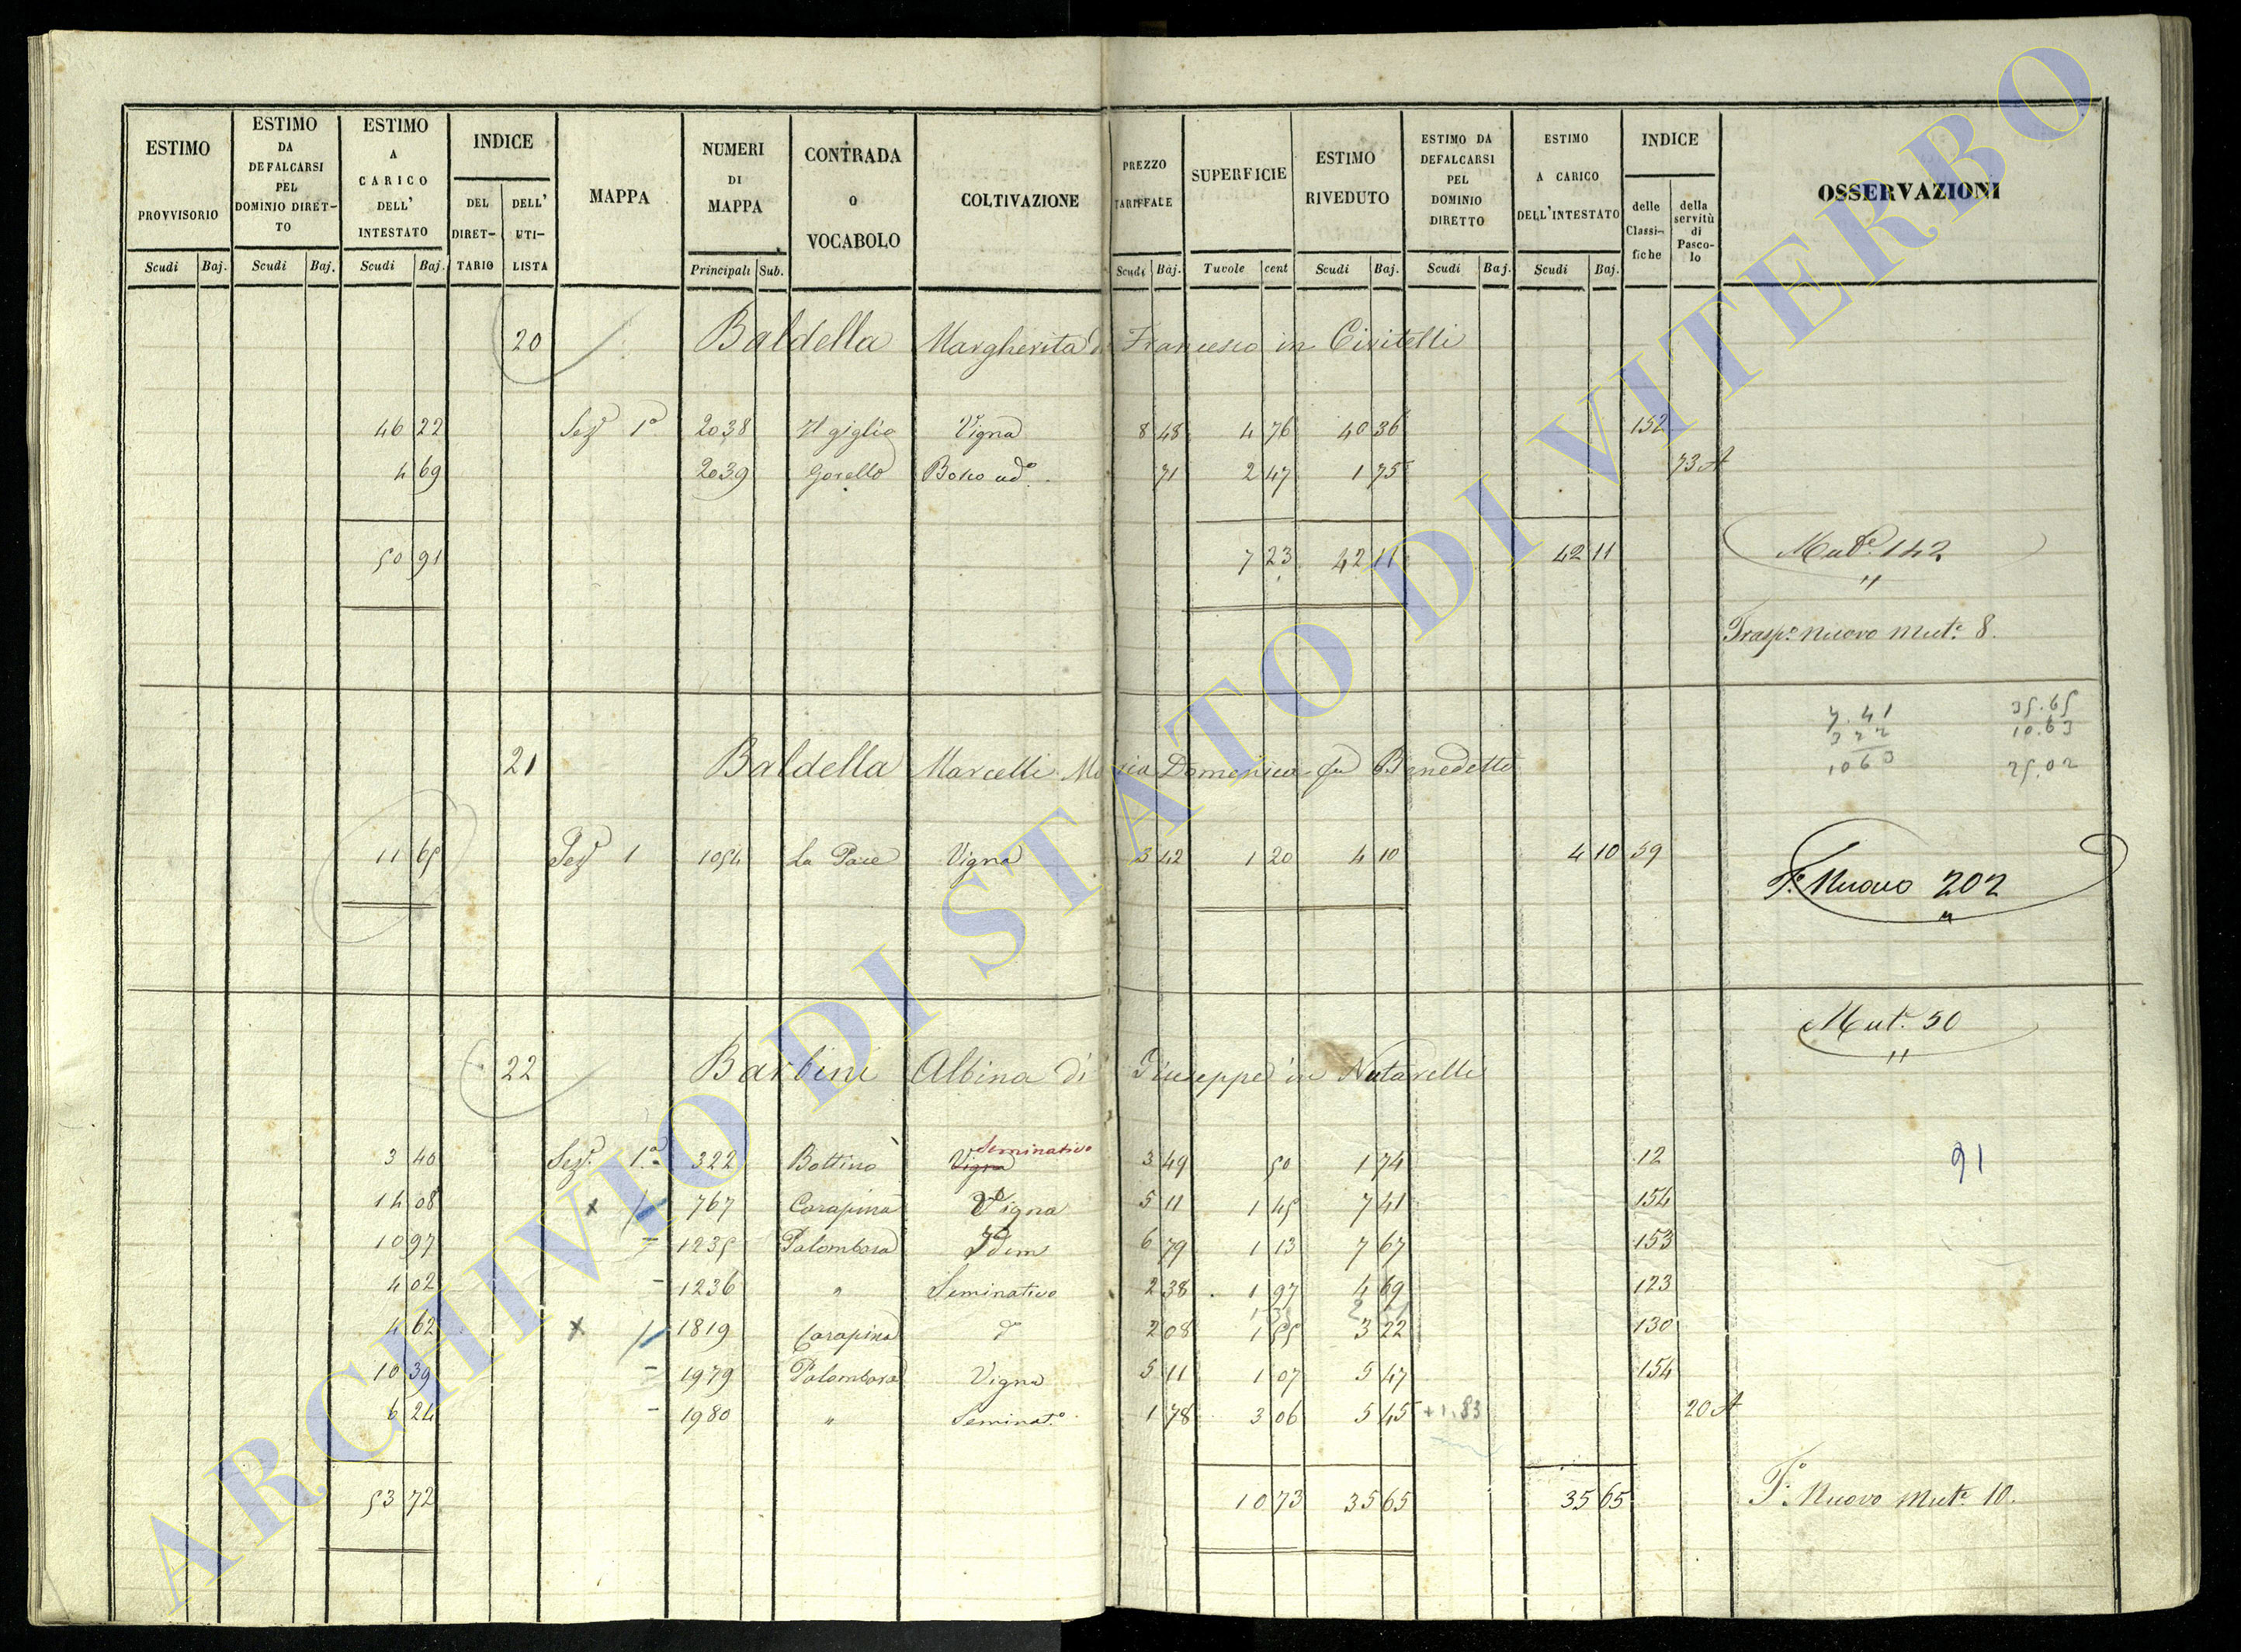 ESTIMO PROVVISORIO
ESTIMO DA DEFALCARSI PEL DOMINIO DIRET-TO
ESTIMO A CARICO DELL' INTESTATO
INDICE
DEL DIRET-TARIO
DELL' UTI-LISTA
MAPPA
NUMERI DI MAPPA
CONTRADA O VOCABOLO
COLTIVAZIONE
PREZZO TARIFFALE
SUPERFICIE
ESTIMO RIVEDUTO
ESTIMO DA DEFALCARSI PEL DOMINIO DIRETTO
ESTIMO A CARICO DELL'INTESTATO
INDICE
delle Classi-fiche
della servitù di Pasco-lo
OSSERVAZIONI
Scudi Baj. Scudi Baj. Scudi Baj. Principali Sub. Scudi Baj. Tavole cent Scudi Baj. Scudi Baj. Scudi Baj.
20 Baldella Margherita di Francesco in Civitelli
46 22 Sez.e 1a 2038 Il giglio Vigna 8 48 4 76 40 36 152
4 69 2039 Gorello Bosco ad.o 71 2 47 1 75 73 A
50 91 7 23 42 11 42 11 Mut.e 142
"
Trasp.o nuovo Mut.e 8.
7.41 35.65
3 22 10.63
10 63 25.02
21 Baldella Marcelli Maria Domenica fu Benedetto
11 65 Sez.e 1 1054 La Pace Vigna 3 42 1 20 4 10 4 10 59
T.o Nuovo 202
"
Mut.e 50
"
22 Barbini Albina di Giuseppe in Natarelli
Seminativo
3 40 Sez.e 1.a 322 Bottino Vigna 3 49 50 1 74 12 91
14 08 x 767 Carapina Vigna 5 11 1 45 7 41 154
10 97 - 1235 Palombara Idem 6 79 1 13 7 67 153
4 02 - 1236 " Seminativo 2 38 1 97 4 69 123
4 62 x 1819 Carapina d 2 08 1 55 3 22 130
10 39 - 1979 Palombara Vigna 5 11 1 07 5 47 154
6 24 - 1980 " Seminat.o 1 78 3 06 5 45 +1.83 20 A
53 72 10 73 35 65 35 65 T.o Nuovo Mut.e 10.
ARCHIVIO DI STATO DI VITERBO